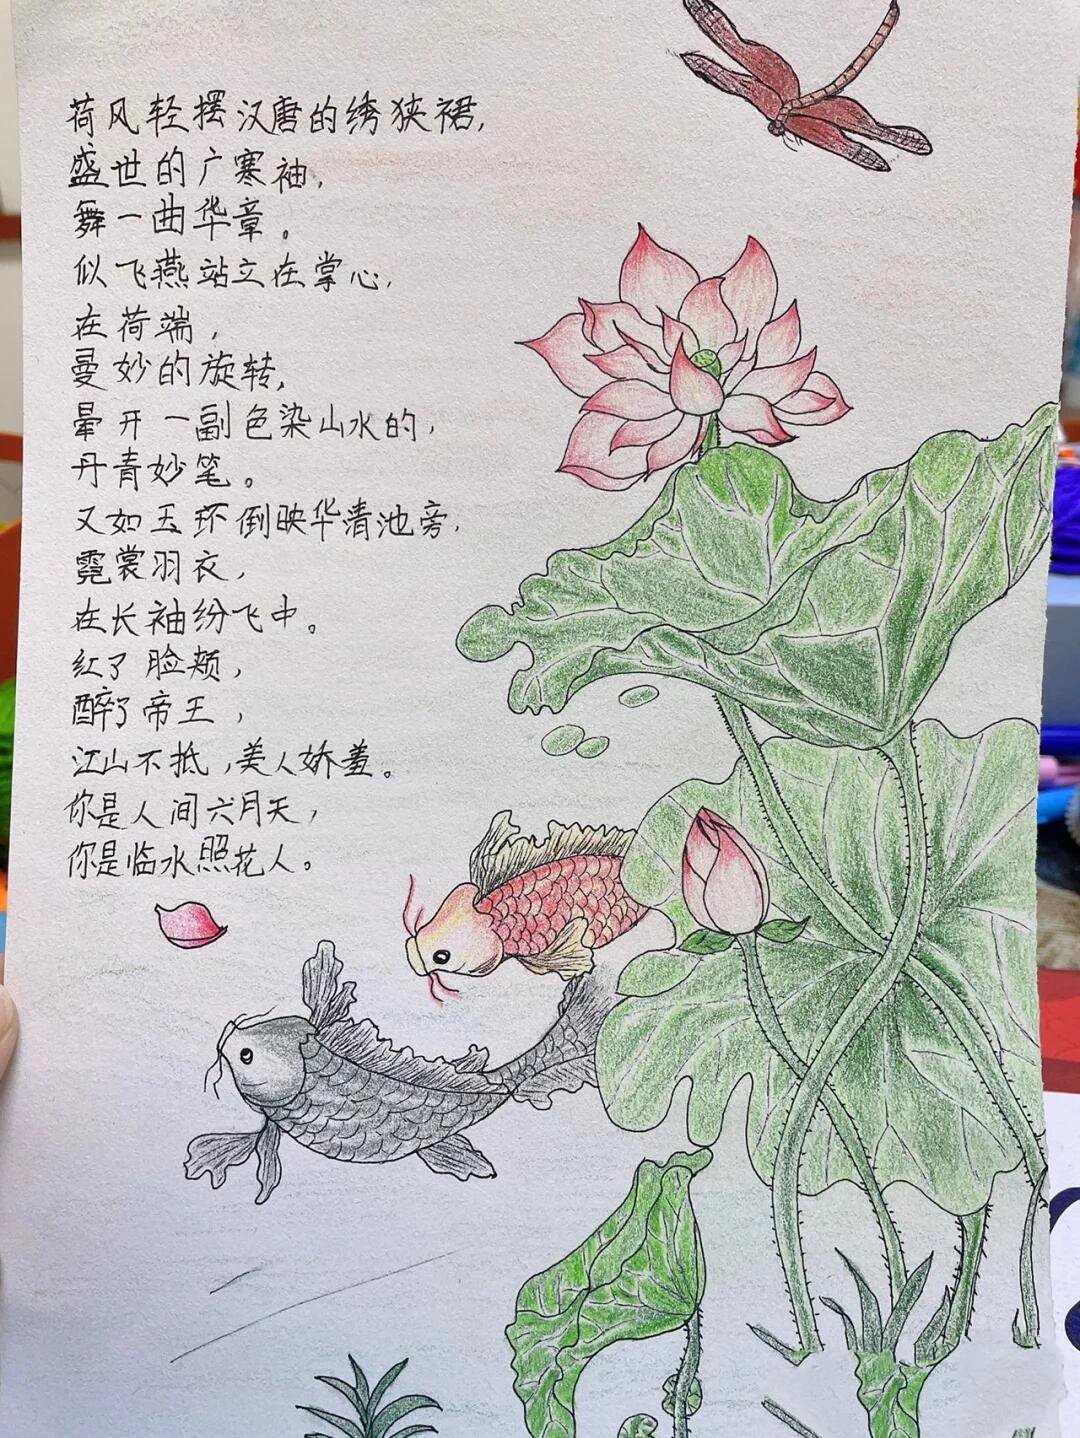 荷风轻摆汉唐的绣狭裙,
盛世的广寒袖,
舞一曲华章。
似飞燕站立在掌心,
在荷端,
曼妙的旋转,
晕开一副色染山水的,
丹青妙笔。
又如玉环倒映华清池旁,
霓裳羽衣,
在长袖纷飞中。
红了脸颊,
醉了帝王,
江山不抵,美人娇羞。
你是人间六月天,
你是临水照花人。